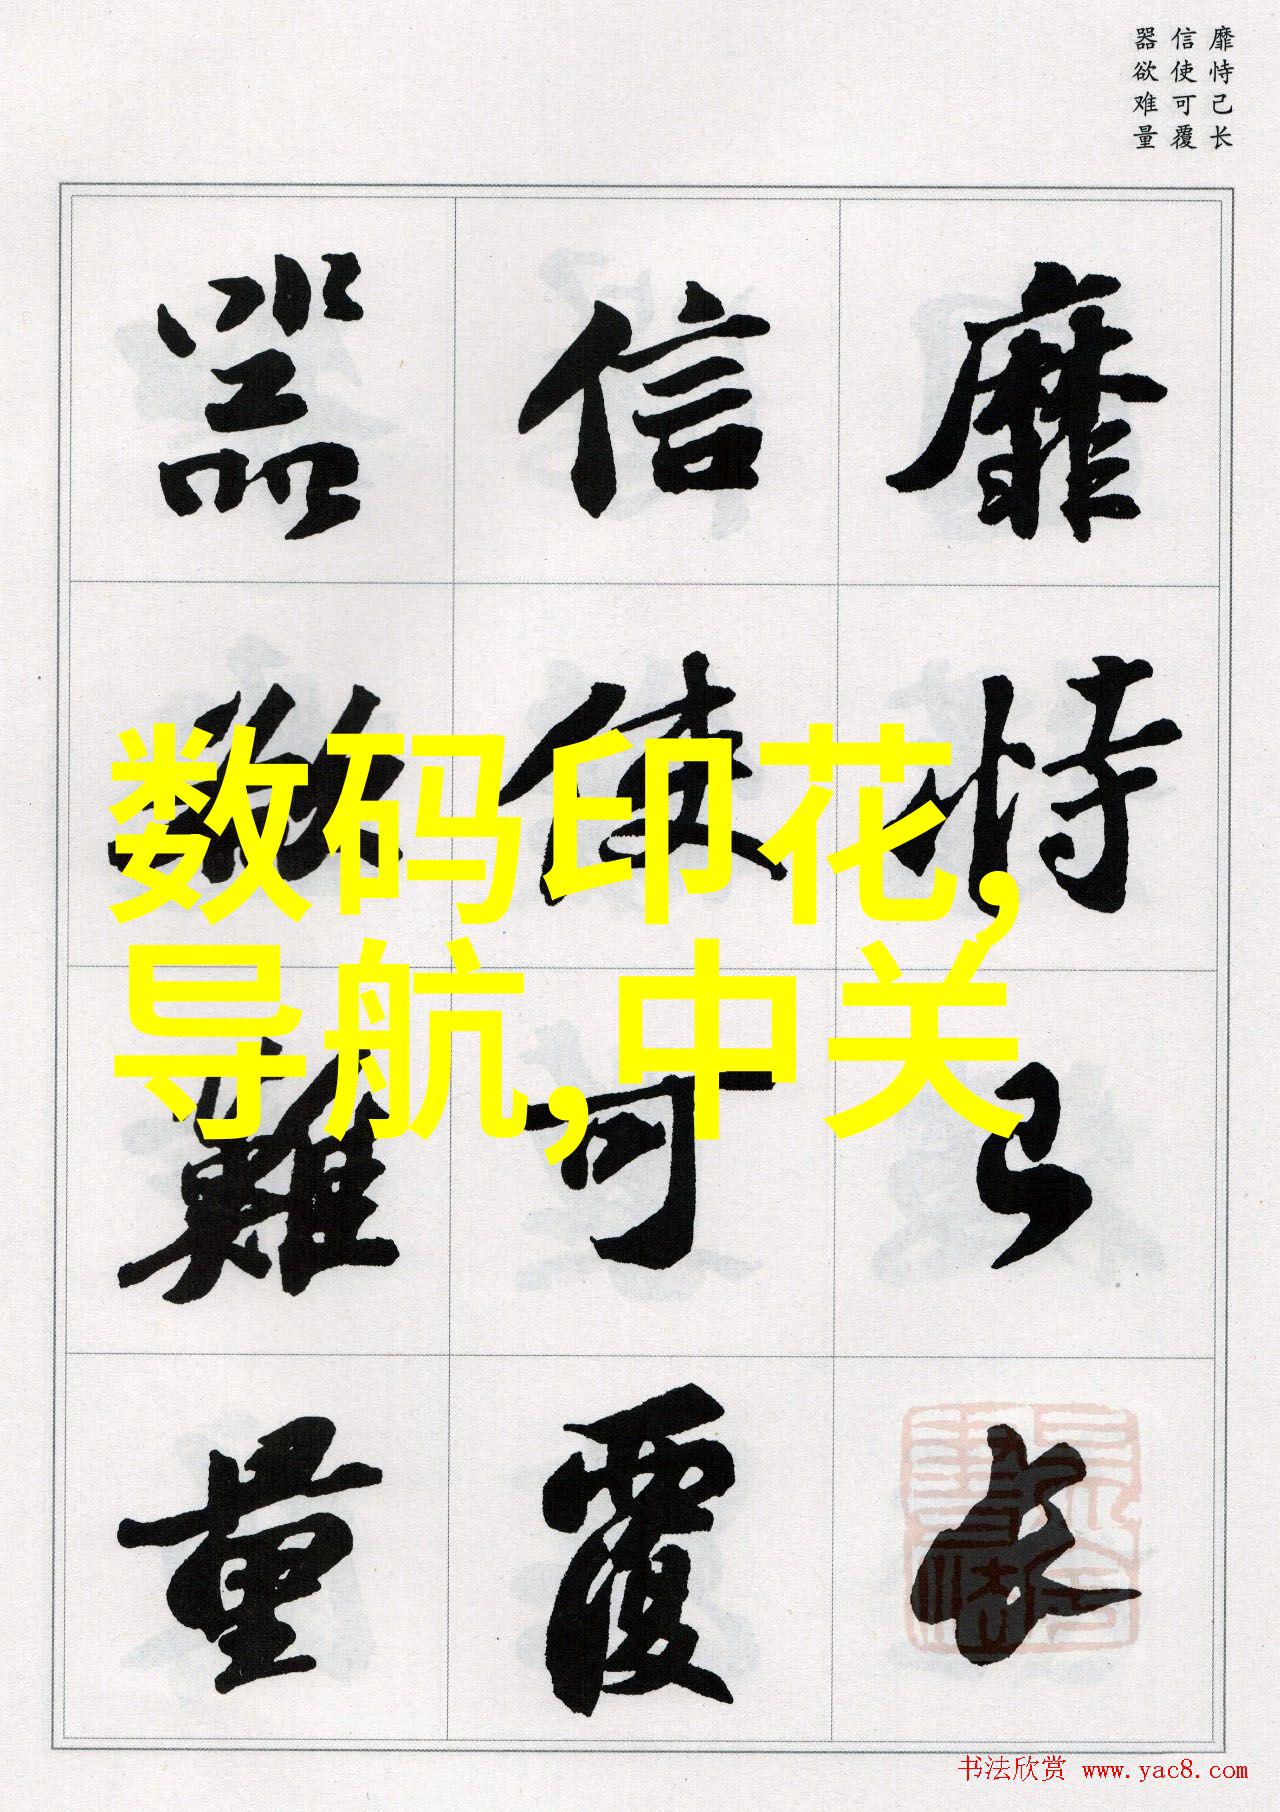 靡恃己长
信使可覆
器欲难量
靡恃己长
信使可覆
器欲難量
数码印花,
导航,中关
书法欣赏 www.yac8.com